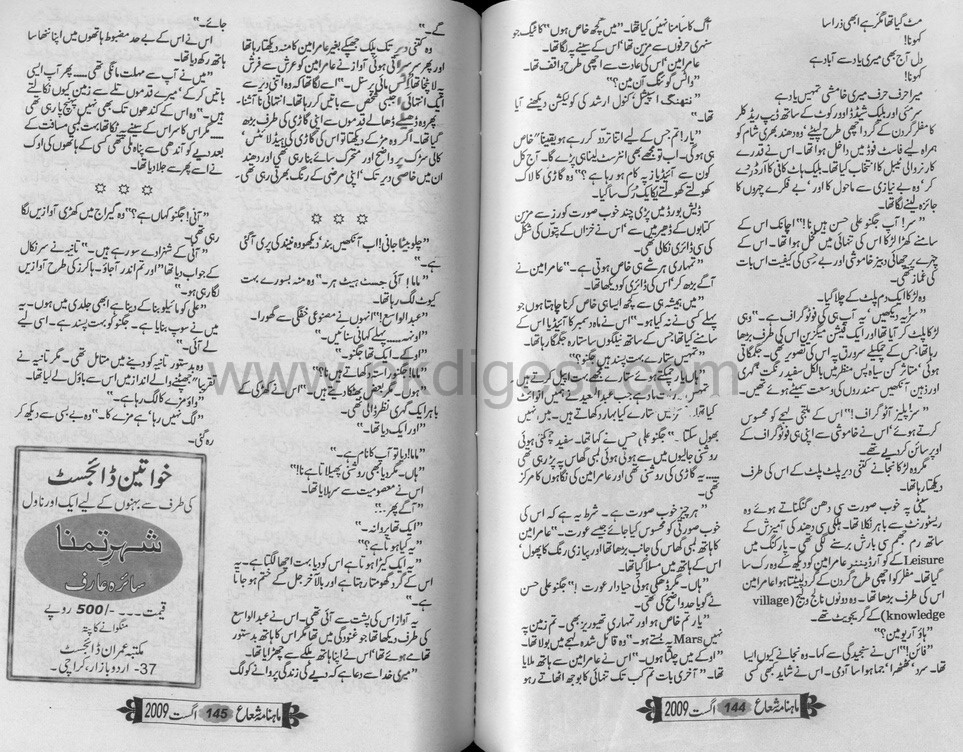 مٹ گیا تھا مگر ہے ابھی ذرا سا
کہو نا!
دل آج بھی میری یاد سے آباد ہے
کہو نا!
میرا حرف حرف میری خامشی تمہیں یاد ہے
سرمئی اور بلیک شیڈڈ اوور کوٹ کے ساتھ ڈیپ ریڈ کلر
کا مفلر گردن کے گرد اچھی طرح لپیٹے، وہ دھند بھری شام کو
ہمراہ لیے فاسٹ فوڈ میں داخل ہوا تھا۔ اس نے قدرے
کارنر والی ٹیبل کا انتخاب کیا تھا۔ بلیک ہاٹ کافی کا آرڈر دے
کر، وہ بے نیازی سے ماحول کا اور بے فکرے چہروں کا
جائزہ لینے لگا تھا۔
”سر! آپ جگنو علی حسن ہیں نا!“ اچانک اس کے
سامنے کھڑا لڑکا اس کی تنہائی میں مخل ہوا تھا۔ اس کے
چہرے پر چھائی دبیز خاموشی اور بے حسی کی کیفیت اس بات
کی غماز تھی۔
وہ لڑکا ایک دم پلٹ کے چلا گیا۔
”سر! یہ دیکھیں، یہ آپ ہی کی فوٹو گراف ہے۔“ وہی
لڑکا پلٹ کر آیا تھا اور ایک فیشن میگزین اس کی طرف بڑھا
رہا تھا جس کے چمکیلے سرورق پہ اس کی تصویر تھی۔ جگمگاتی
ہوئی، متاثر کن سیاہ پس منظر میں بالکل سفید رنگت، گہری
اور ذہین آنکھیں سمندروں کی وسعت سمیٹے ہوئے تھیں۔
”سر! پلیز آٹو گراف!“ اس کے ملتجی لہجے کو محسوس
کرتے ہوئے، اس نے خاموشی سے اپنی ہی فوٹو گراف کے
اوپر سائن کر دیے تھے۔
مگر وہ لڑکا نجانے کتنی دیر پلٹ پلٹ کے اس کی طرف
دیکھتا رہا تھا۔
سیٹی پہ خوب صورت سی دھن گنگناتے ہوئے وہ
ریسٹورنٹ سے باہر نکلا تھا۔ ہلکی سی دھند کی آمیزش کے
ساتھ رم جھم سی بارش برسنے لگی تھی۔ پارکنگ میں
Leisure کے کوآرڈینیٹر عامر امین کو دیکھ کے وہ رک سا
گیا تھا۔ مفلر کو اچھی طرح گردن کے گرد لپیٹتا ہوا عامر امین
اس کی طرف بڑھا تھا۔ وہ دونوں نالج ویلیج (village
knowledge) کے گریجویٹ تھے۔
”ہاؤ آر یو مین؟“
”فائن!“ اس نے سنجیدگی سے کہا۔ وہ نجانے کیوں ایسا
تھا۔ سرد، ٹھٹھرا، جما ہوا سا آدمی۔ اس نے شاید کبھی کسی
آگ کا سامنا نہیں کیا تھا۔ ”میں کچھ خاص ہوں“ کا ٹیگ جو
سنہری حرفوں سے مزین تھا، اس کے سینے پہ لگا تھا۔
عامر امین، اس کی عادت سے اچھی طرح واقف تھا۔
”واٹس گوئنگ آن مین؟“
”نتھنگ اسپیشل، کنول ارشد کی کولیکشن دیکھنے آیا
تھا۔“
”یار! تم جس کے لیے اتنا تردد کر رہے ہو یقیناً، خاص
ہی ہو گی۔ اب تو مجھے بھی انٹرسٹ لینا ہی پڑے گا۔ آج کل
کون سے آئیڈیاز پہ کام ہو رہا ہے؟“ وہ گاڑی کا لاک
کھولتے کھولتے یکایک رک سا گیا۔
ڈیش بورڈ میں پڑی چند خوب صورت کورز سے مزین
کتابوں کے ڈھیر میں سے، اس نے خزاں کے پتوں کی شکل
کی سی ڈائری نکالی تھی۔
”تمہاری ہر شے ہی خاص ہوتی ہے۔“ عامر امین نے
آگے بڑھ کر، اس کی ڈائری کو دیکھا۔
”میں ہمیشہ ہی سے کچھ ایسا ہی خاص کرنا چاہتا ہوں جو
پہلے کسی نے نہ کیا ہو۔“ اس نے ماہ دسمبر کا آئیڈیا اس کے
سامنے کیا تھا جس کے ساتھ نیلگوں ستارہ جگمگا رہا تھا۔
”تمہیں ستارے بہت پسند ہیں جگنو؟“
”ہاں یار! چمکتے ہوئے ستارے مجھے بہت اپیل کرتے ہیں
کیا تھا
بھول سکتا۔“ جگنو علی حسن نے کہا تھا۔ سفید چمکتی ہوئی
روشنی جالیوں میں سے ہوتی ہوئی لمبی گھاس پہ پڑ رہی تھی
...... یہ گاڑی کی روشنی تھی اور عامر امین کی نگاہوں کا مرکز
تھی۔
”ہر چیز خوب صورت ہے۔ شرط یہ ہے کہ اس کی
خوب صورتی کو محسوس کیا جائے جیسے عورت۔“ عامر امین
کا ہاتھ لمبی گھاس کی جانب بڑھا تھا اور پیازی رنگ کا پھول
اس کے ہاتھ میں مسلا گیا تھا۔
”ہاں۔ مگر ڈھکی ہوئی حیادار عورت!“ جگنو علی حسن
نے گویا حد واضح کی تھی۔
”یار تم خاص ہو اور تمہاری تھیوریز بھی۔ تم زمین پہ
نہیں Mars پہ بستے ہو۔“ وہ قائل شدہ لہجے میں بولا تھا۔
”اوکے میں چلتا ہوں۔“ اس نے عامر امین سے ہاتھ ملایا
تھا۔ ”آخری بات تم کب تک تنہائی کا بوجھ اٹھاتے رہو
ماہنامہ شعاع 144 اگست 2009
گے۔“
وہ کتنی دیر تک پلک جھپکے بغیر عامر امین کا منہ دیکھتا رہا تھا
اور پھر سرسراتی ہوئی آواز نے عامر امین کو عرش سے فرش
پہ لا پٹخا تھا، ”اٹس مائی پرسنل۔“ اسے لگا تھا کہ وہ اتنی دیر سے
ایک انتہائی اجنبی شخص سے باتیں کر رہا تھا۔ انتہائی ناآشنا۔
پھر وہ ڈھیلے ڈھالے قدموں سے اپنی گاڑی کی طرف بڑھ
گیا تھا۔ اگر وہ مڑ کے دیکھتا تو اس کی گاڑی کی ہیڈ لائٹس،
کالی سڑک پر واضح اور متحرک سائے بنا رہی تھی اور دھند
ان میں خاصی دیر تک، اپنی مرضی کے رنگ بھرتی رہی تھی۔
☼ ☼ ☼
”چلو بیٹا جانی! اب آنکھیں بند، دیکھو وہ نیند کی پری آ گئی
ہے۔“
”ماما! آئی جسٹ ہیٹ ہر۔“ وہ منہ بسورے بہت
کیوٹ لگ رہا تھا۔
”عبدالواسع!“ انہوں نے مصنوعی خفگی سے گھورا۔
”اونہہ.... پہلے کہانی سنائیں۔“
”اوکے۔ ایک تھا جگنو۔“
”ماما! جگنو راستہ دکھاتے ہیں نا؟“
”ہوں۔ مگر بعض بھٹکا دیتے ہیں۔“ اس نے کھڑکی کے
باہر ایک گہری نظر ڈالی تھی۔
”اور ایک دیا تھا۔“
”ماما! دیا تو آپ کا نام ہے۔“
”ہاں۔ مگر دیا بھی روشنی پھیلاتا ہے نا!“
اس نے معصومیت سے سر ہلایا تھا۔
”آگے پھر....“
”ایک تھا پروانہ۔“
”یہ کیا ہوتا ہے؟“
”یہ ایک کیڑا ہوتا ہے اس کو دیا بہت اچھا لگتا ہے۔ یہ
اس کے گرد گھومتا رہتا ہے اور بالآخر جل کے ختم ہو جاتا
ہے۔“
یہ آواز اس کی پشت سے آئی تھی۔ اس نے عبدالواسع
کی طرف دیکھا تھا جو غنودگی میں تھا مگر اس کا ہاتھ بدستور
تھامے ہوئے تھا، اس نے اپنا ہاتھ ہلکے سے چھڑایا تھا۔
”میری خدا سے دعا ہے کہ دیے کی زندگی پروانے کو لگ
جائے۔“
اس نے اس کے بے حد مضبوط ہاتھوں میں اپنا ننھا سا
ہاتھ رکھ دیا تھا۔
”میں نے آپ سے مہلت مانگی تھی..... پھر آپ ایسی
باتیں کر کے، میرے قدموں تلے سے زمین کیوں نکالتے
ہیں۔“ وہ اس کے کندھوں تک بھی نہیں پہنچ پا رہی تھی
.... مگر اس کا سر اس کے سینے سے لگا تھا، بہت لمبی مسافت کے
بعد دیے کو آندھی سے پناہ ملی تھی کسی کے ہاتھوں کی اوک
نے اسے پھر سے جلا دیا تھا۔
☼ ☼ ☼
”آنی! جگنو کہاں ہے؟“ وہ گیراج میں کھڑی آوازیں لگا
رہی تھی۔
”آنی کے شہزادے سو رہے ہیں۔“ تانیہ نے سر نکال
کے جواب دیا تھا، ”اور تم اندر آ جاؤ۔ ہاکرز کی طرح آوازیں
لگا رہی ہو۔“
”علی کو مائیلو بنا کے دینا ہے ابھی جلدی میں ہوں۔ یہ
میں نے سوپ بنایا ہے۔ جگنو کو بہت پسند ہے۔ اسی لیے
لے آئی۔“
وہ بدستور تانیہ کو دینے میں متامل تھی۔ مگر تانیہ نے
تقریباً ”جھپٹنے والے انداز میں اس سے باؤل لے لیا تھا۔
”واؤ مزے کا لگ رہا ہے۔“
”لگ نہیں رہا، ہے مزے کا۔“ وہ بے بسی سے دیکھ کر
رہ گئی۔
خواتین ڈائجسٹ
کی طرف سے بہنوں کے لیے ایک اور ناول
شہرِ تمنا
سائرہ عارف
قیمت --- -/500 روپے
منگوانے کا پتہ
مکتبہ عمران ڈائجسٹ
37- اردو بازار، کراچی۔
ماہنامہ شعاع 145 اگست 2009
www.pkdigest.com